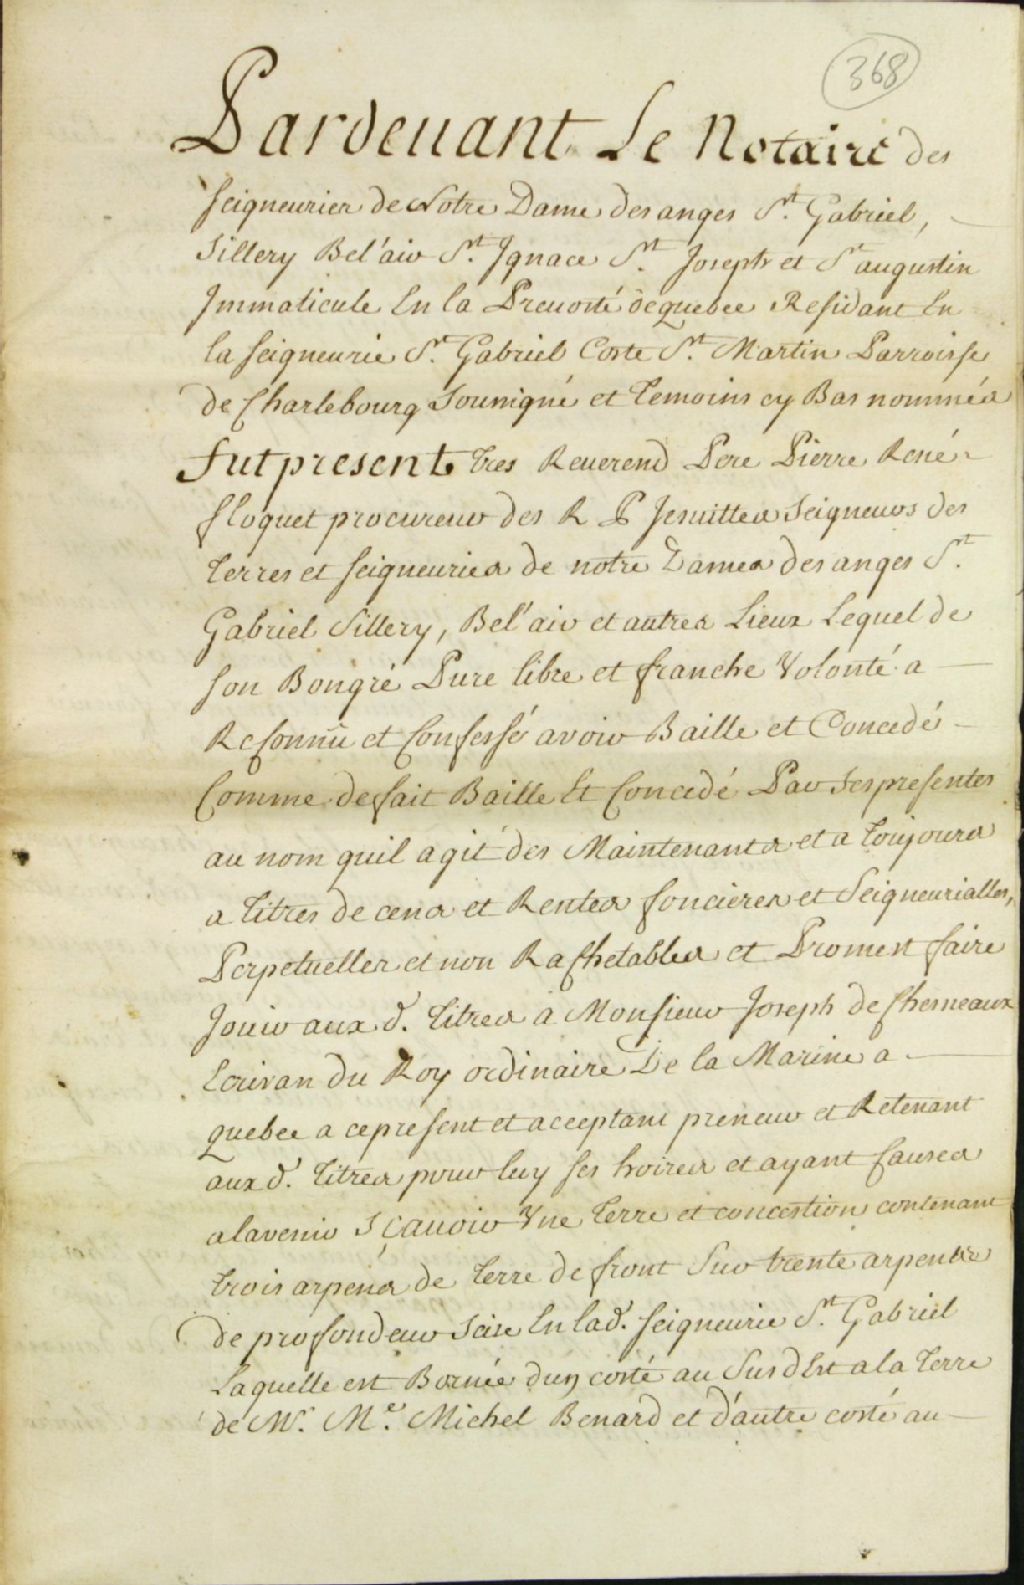 368
Pardeuant Le Notaire des
seigneuries de Notre Dame des anges St. Gabriel,
Sillery Bel'air St. Ignace St. Joseph et St augustin
Immaticule En la Preuosté de quebec Residant En
la seigneurie St. Gabriel Coste St. Martin Parroisse
de Charlebourg Sousigné et temoins cy Bas nommés
fut present tres Reuerend Pere Pierre René
floquet procureur des R P Jesuittes Seigneurs des
terres et seigneuries de notre Dames des anges St.
Gabriel Sillery, Bel'air et autres Lieux Lequel de
son Bongré Pure libre et franche Volonté a
Reconnu et Confessé avoir Baille et Concedé
Comme de fait Baille Et Concedé Par Ses presentes
au nom quil agit des Maintenants et a toujours
a titres de cens et Rentes foncieres et Seigneurialles,
Perpetuelles et non Rachetables et Promest faire
Jouir aux d. titres a Monsieur Joseph de Chesneaux
Ecrivan du Roy ordinaire De la Marine a
quebec a ce present et acceptant preneur et Retenant
aux d. titres pour luy ses hoires et ayant causes
alavenir Sçauoir Vne terre et concestion contenant
trois arpens de terre de front Sur trente arpents
de profondeur Scise En lad. seigneurie St. Gabriel
Laquelle est Bornée dun costé au Sud Est a la terre
de Mr. Me. Michel Benard et d'autre costé au